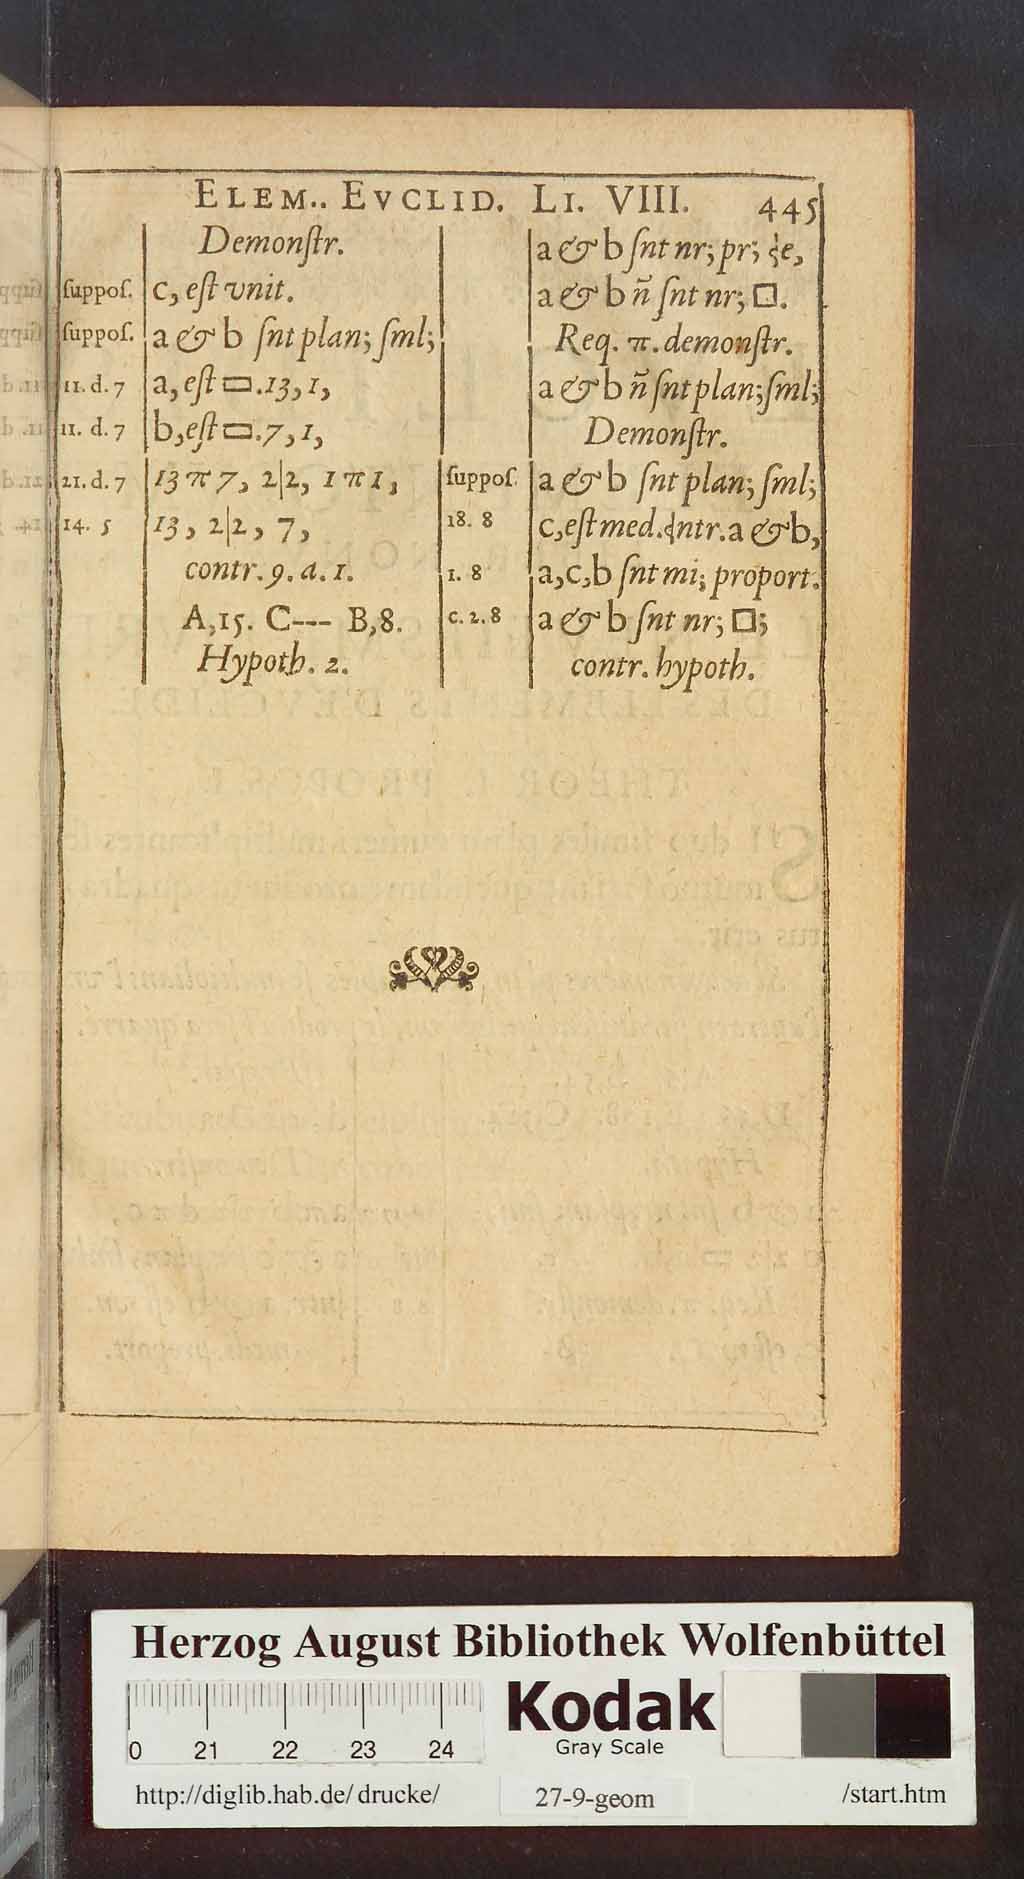 ELEM.. EVCLID. LI. VIII. 445
Demonſtr.
ſuppoſ. c, eſt vnit.
ſuppoſ. a & b ſnt plan; ſml;
11. d. 7 a, eſt ▭. 13, 1,
11. d. 7 b, eſt ▭. 7, 1,
21. d. 7 13 π 7, 2|2, 1 π 1,
14. 5 13, 2|2, 7,
contr. 9. a. 1.
A, 15. C--- B, 8.
Hypoth. 2.
a & b ſnt nr; pr;
a & b ñ ſnt nr; □.
Req. π. demonſtr.
a & b ñ ſnt plan; ſml;
Demonſtr.
ſuppoſ. a & b ſnt plan; ſml;
18. 8 c, eſt med. a & b,
1. 8 a, c, b ſnt mi; proport.
c. 2. 8 a & b ſnt nr; □;
contr. hypoth.
Herzog August Bibliothek Wolfenbüttel
0 21 22 23 24
Kodak
Gray Scale
http://diglib.hab.de/drucke/ 27-9-geom /start.htm